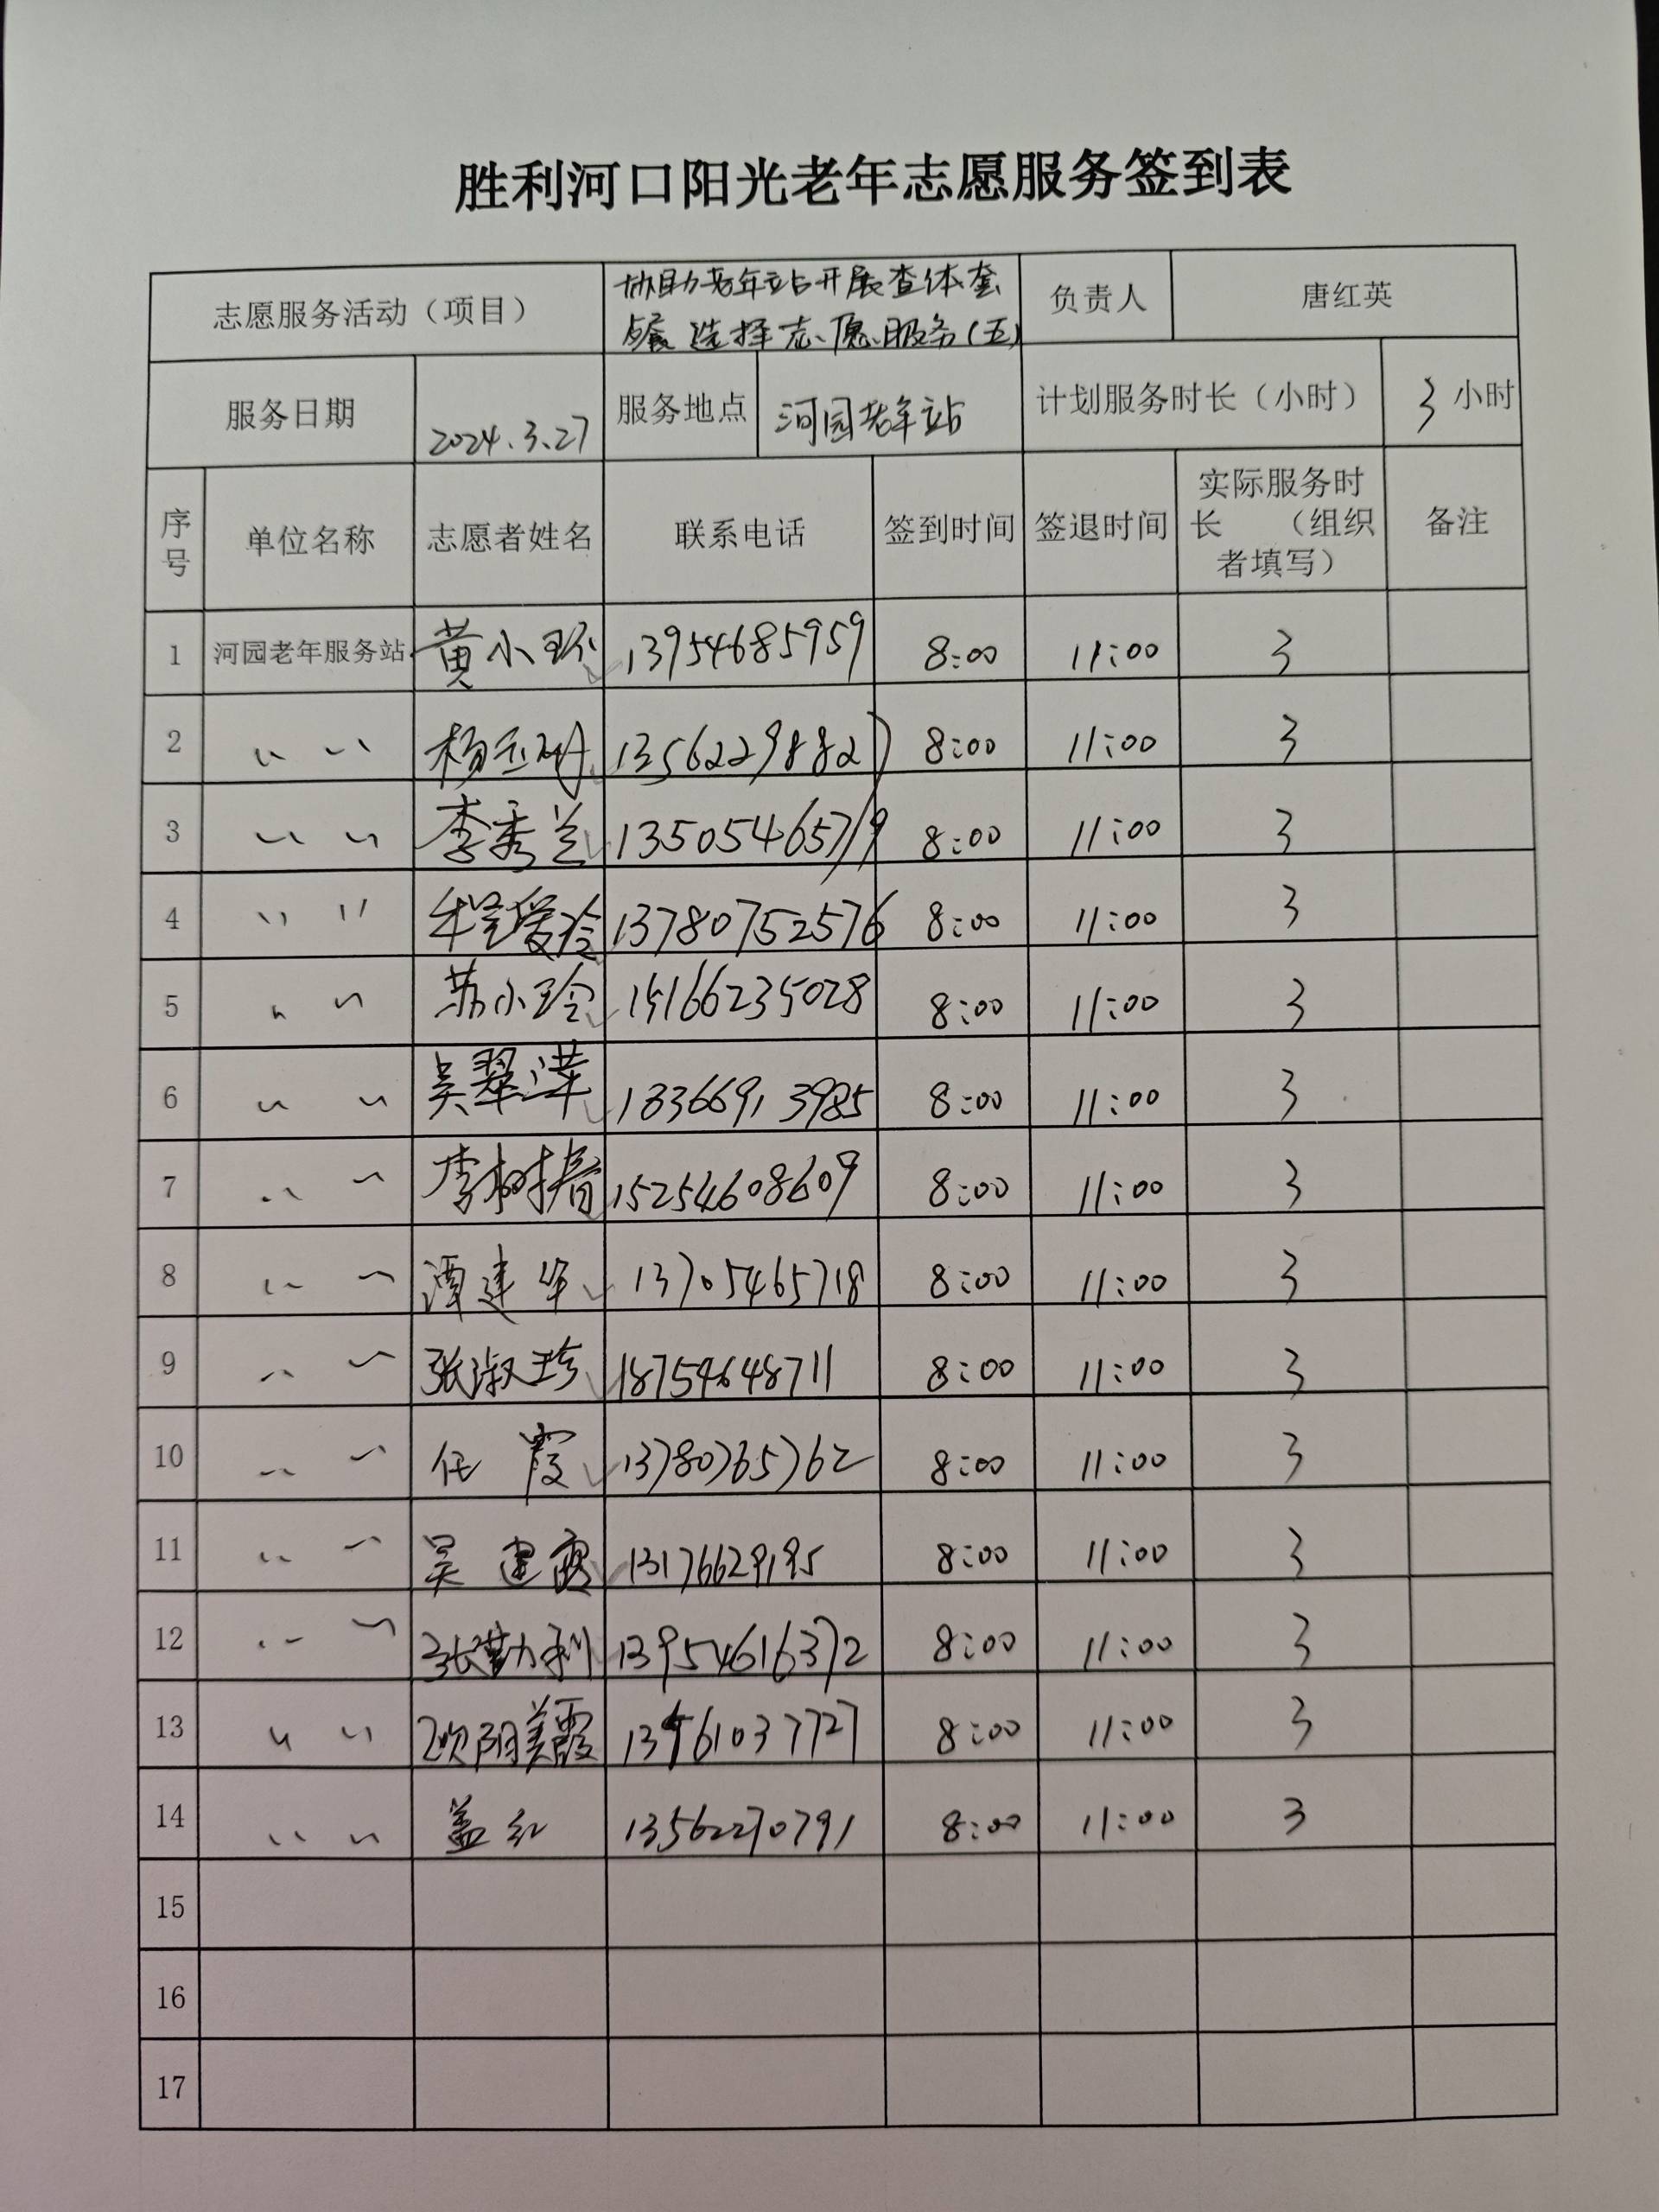 胜利河口阳光老年志愿服务签到表
志愿服务活动（项目） 协助老年站开展查体套餐选择志愿服务（五） 负责人 唐红英
服务日期 2024.3.27 服务地点 河园老年站 计划服务时长（小时） 3 小时
序号 单位名称 志愿者姓名 联系电话 签到时间 签退时间 实际服务时长 （组织者填写） 备注
1 河园老年服务站 黄小环 13954685959 8:00 11:00 3
2 〃 〃 杨玉树 13562298827 8:00 11:00 3
3 〃 〃 李秀兰 13505465719 8:00 11:00 3
4 〃 〃 爱玲 13780752576 8:00 11:00 3
5 〃 〃 苏小玲 15166235028 8:00 11:00 3
6 〃 〃 吴翠萍 18366913985 8:00 11:00 3
7 〃 〃 李树春 15254608609 8:00 11:00 3
8 〃 〃 谭建华 13705465718 8:00 11:00 3
9 〃 〃 张淑珍 18754648711 8:00 11:00 3
10 〃 〃 任霞 13780765762 8:00 11:00 3
11 〃 〃 吴建霞 13176629195 8:00 11:00 3
12 〃 〃 张勤利 13954616372 8:00 11:00 3
13 〃 〃 欧阳美霞 13561037727 8:00 11:00 3
14 〃 〃 盖红 13562270791 8:00 11:00 3
15
16
17